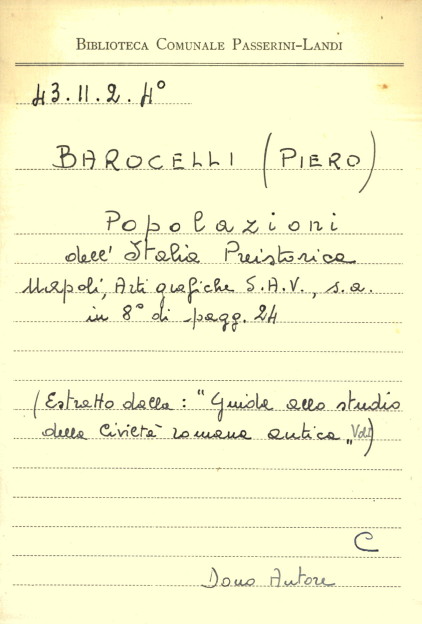 BIBLIOTECA COMUNALE PASSERINI-LANDI
43.II.2.4°
BAROCELLI (PIERO)
Popolazioni
dell'Italia Preistorica
Napoli, Arti grafiche S.A.V., s.a.
in 8° di pagg. 24
(Estratto dalla: "Guida allo studio
della Civiltà romana antica"
C
Dono Autore